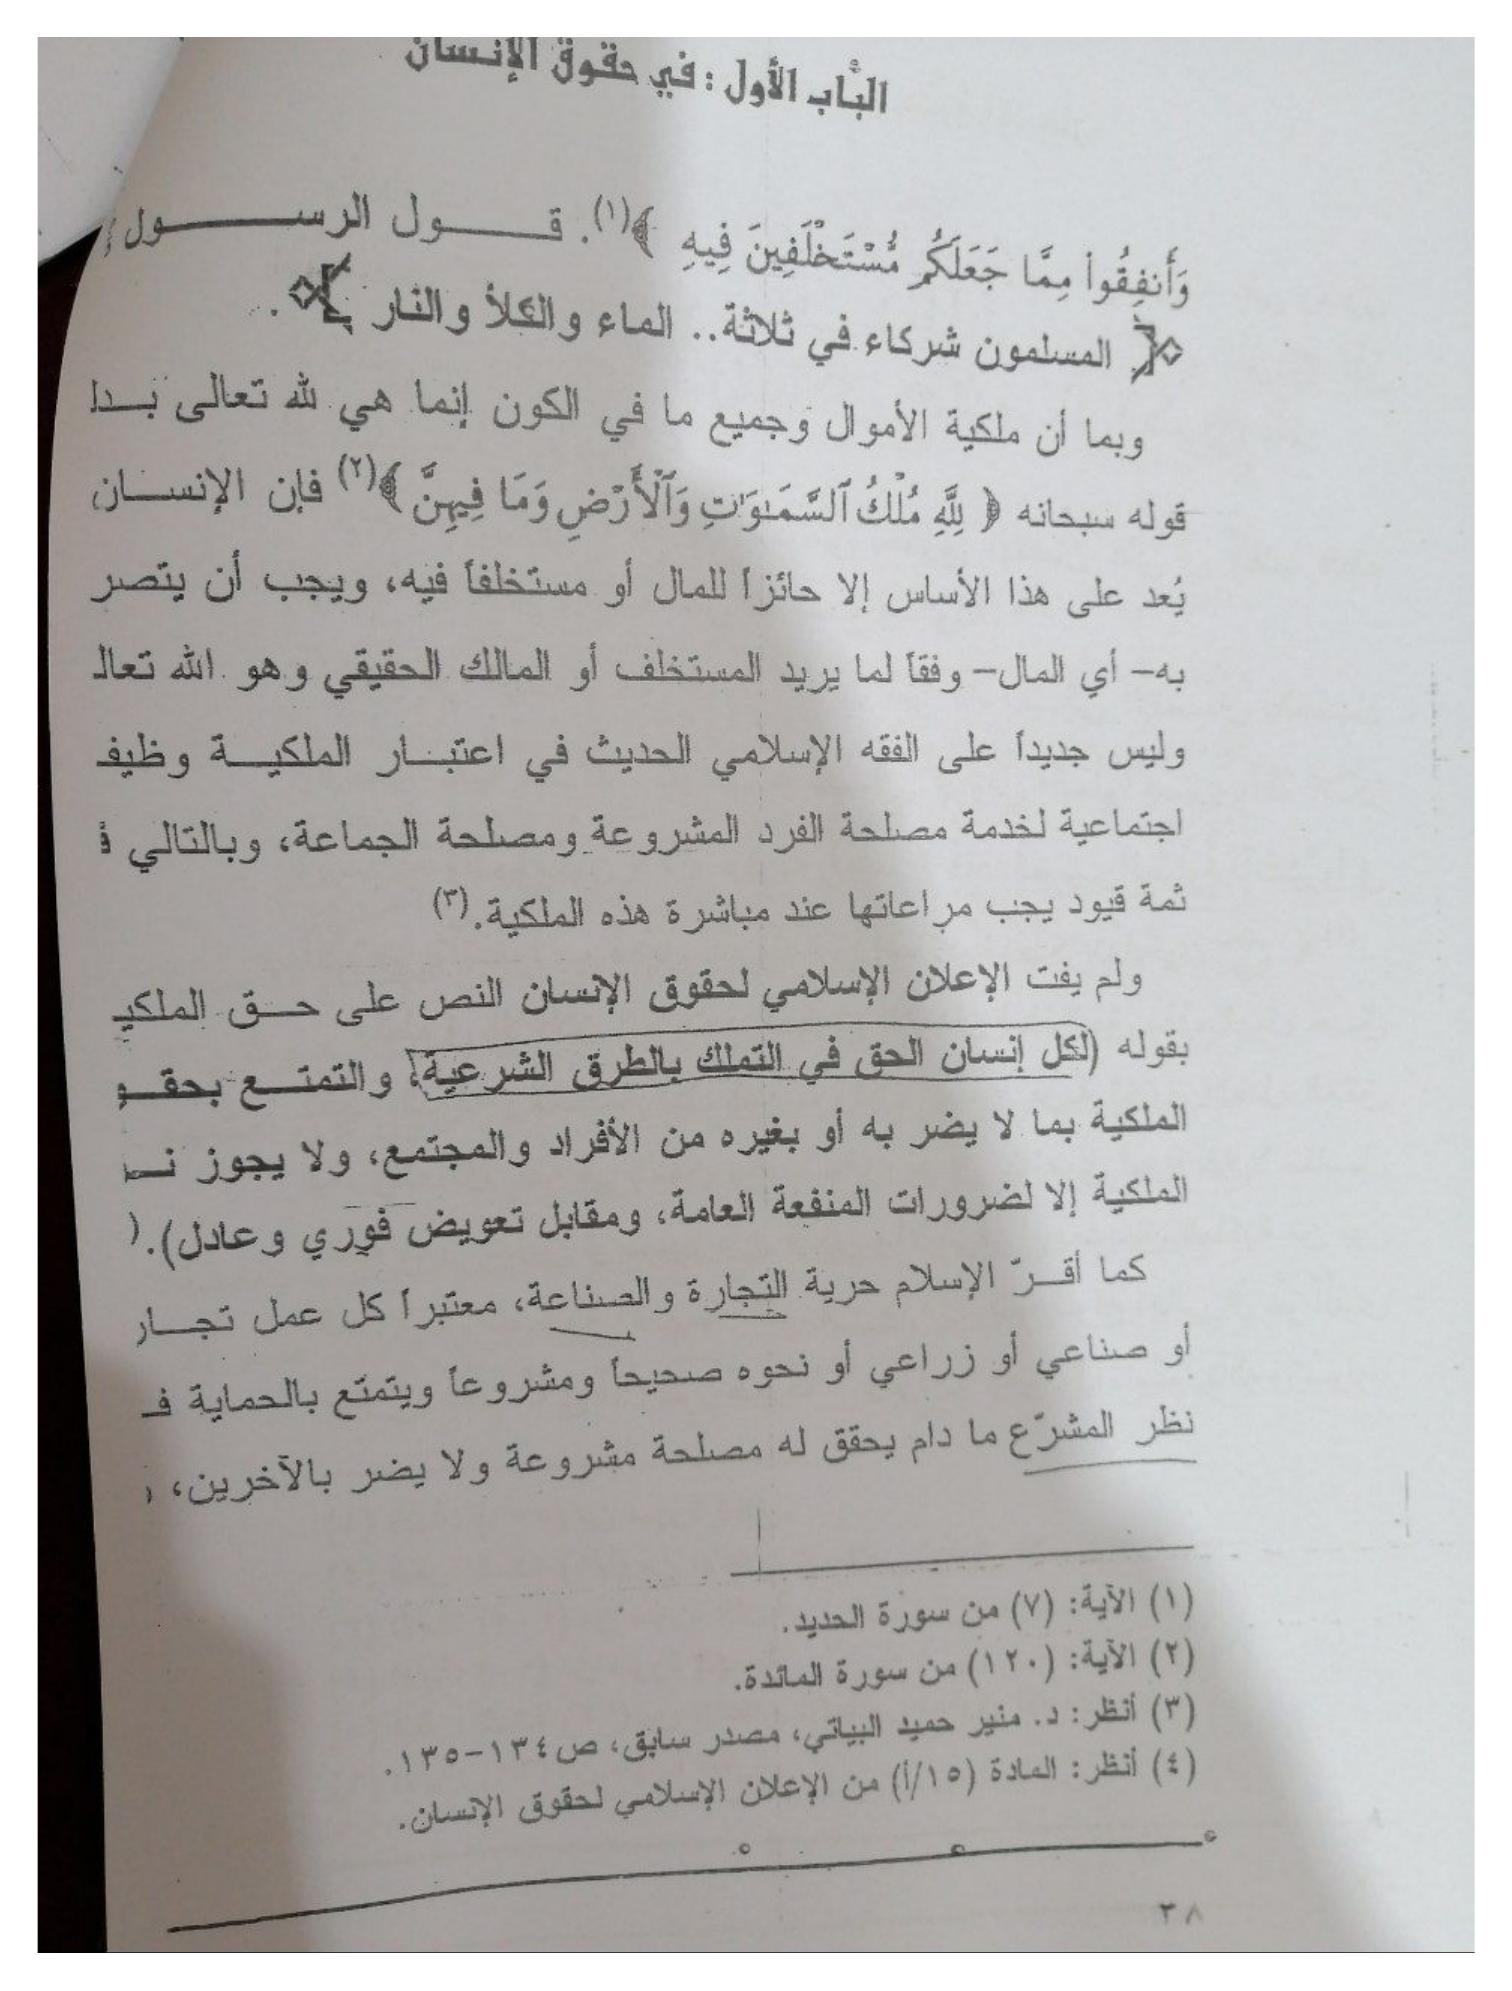 الباب الأول : في حقوق الإنسان
وَأَنفِقُوا مِمَّا جَعَلَكُم مُّسْتَخْلَفِينَ فِيهِ ﴾(١). قــــول الرســــــول
المسلمون شركاء في ثلاثة.. الماء والكلأ والنار .
وبما أن ملكية الأموال وجميع ما في الكون إنما هي لله تعالى
قوله سبحانه ﴿ لِلَّهِ مُلْكُ ٱلسَّمَٰوَٰتِ وَٱلْأَرْضِ وَمَا فِيهِنَّ ﴾(٢) فإن الإنســان
يُعد على هذا الأساس إلا حائزاً للمال أو مستخلفاً فيه، ويجب أن يتصر
به- أي المال- وفقاً لما يريد المستخلف أو المالك الحقيقي وهو الله تعال
وليس جديداً على الفقه الإسلامي الحديث في اعتبــار الملكيــة وظيف
اجتماعية لخدمة مصلحة الفرد المشروعة ومصلحة الجماعة، وبالتالي
ثمة قيود يجب مراعاتها عند مباشرة هذه الملكية.(٣)
ولم يفت الإعلان الإسلامي لحقوق الإنسان النص على حــق الملكي
بقوله (لكل إنسان الحق في التملك بالطرق الشرعية، والتمتــع بحقــو
الملكية بما لا يضر به أو بغيره من الأفراد والمجتمع، ولا يجوز
الملكية إلا لضرورات المنفعة العامة، ومقابل تعويض فوري وعادل).(
كما أقــرّ الإسلام حرية التجارة والصناعة، معتبراً كل عمل تجــار
أو صناعي أو زراعي أو نحوه صحيحاً ومشروعاً ويتمتع بالحماية فـ
نظر المشرّع ما دام يحقق له مصلحة مشروعة ولا يضر بالآخرين،
(١) الآية: (٧) من سورة الحديد.
(٢) الآية: (١٢٠) من سورة المائدة.
(٣) أنظر: د. منير حميد البياتي، مصدر سابق، ص١٣٤-١٣٥.
(٤) أنظر: المادة (١٥/أ) من الإعلان الإسلامي لحقوق الإنسان.
٣٨